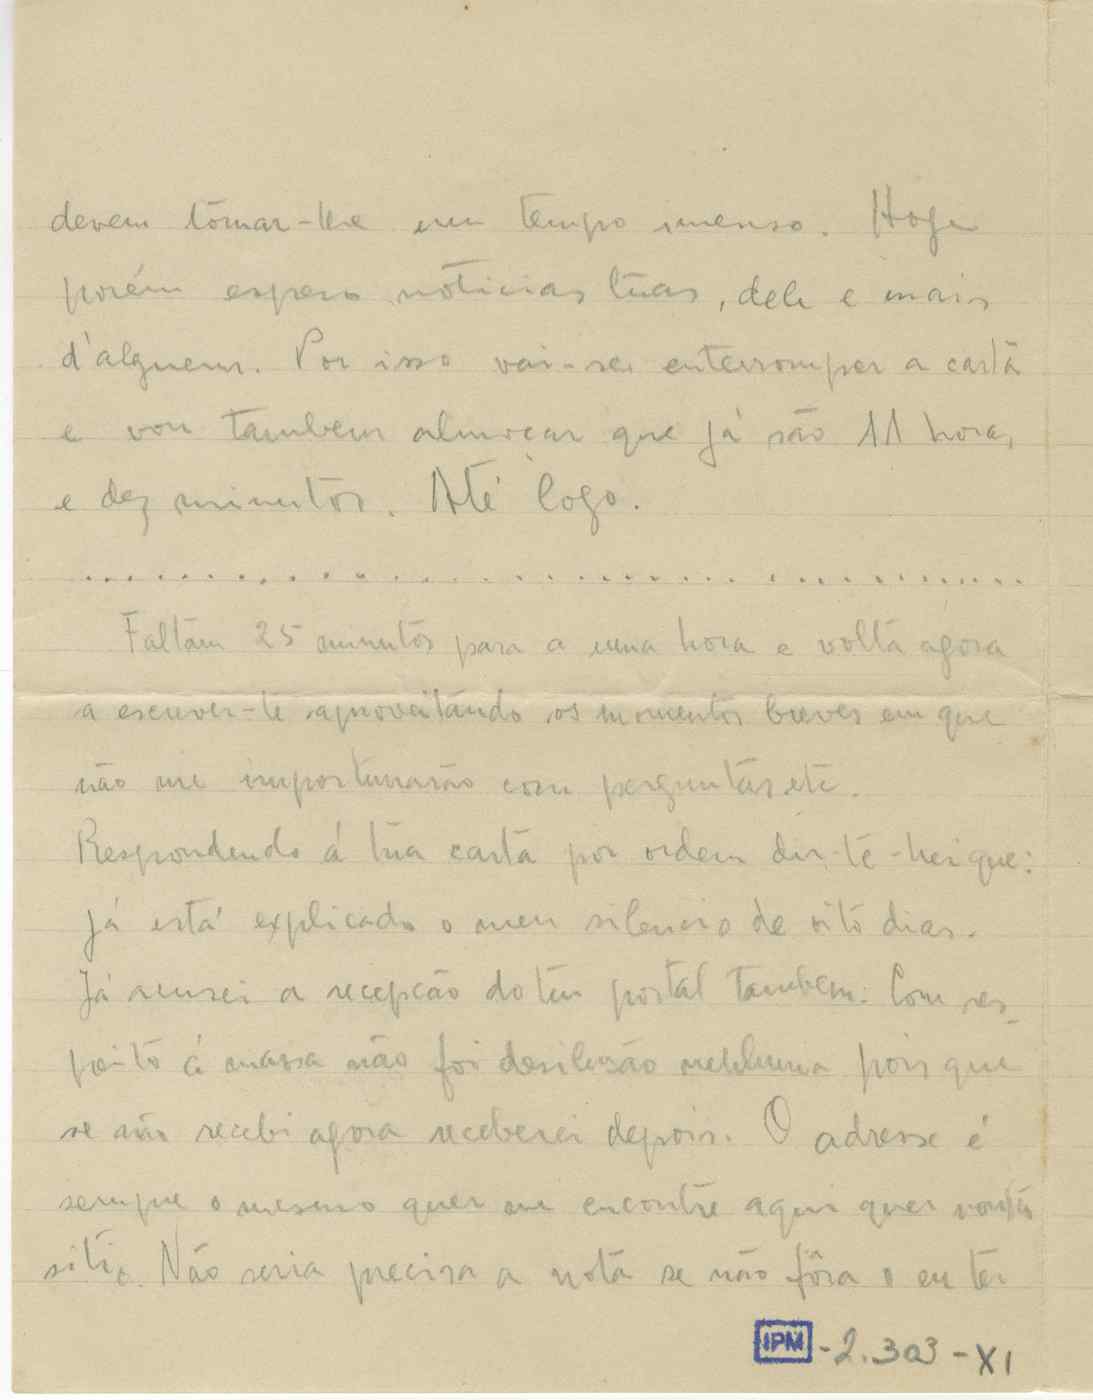 devem tomar-lhe um tempo imenso. Hoje
porém espero noticias tuas, dele e mais
d'alguem. Por isso vai-se enterromper a carta
e vou tambem almoçar que já são 11 horas
e dez minutos. Até logo.
Faltam 25 minutos para a uma hora e volta agora
a escrever-te aproveitando os momentos breves em que
não me importunarão com perguntas etc.
Respondendo á tua carta por ordem dir-te-hei que:
Já está explicado o meu silencio de oito dias.
Já acusei a recepção do teu postal tambem. Com res-
peito á massa não foi desilusão nenhuma pois que
se não recebi agora receberei depois. O adresse é
sempre o mesmo quer me encontre aqui quer noutro
sitio. Não seria precisa a nota se não fôra o eu ter
IPM -2.303-XI